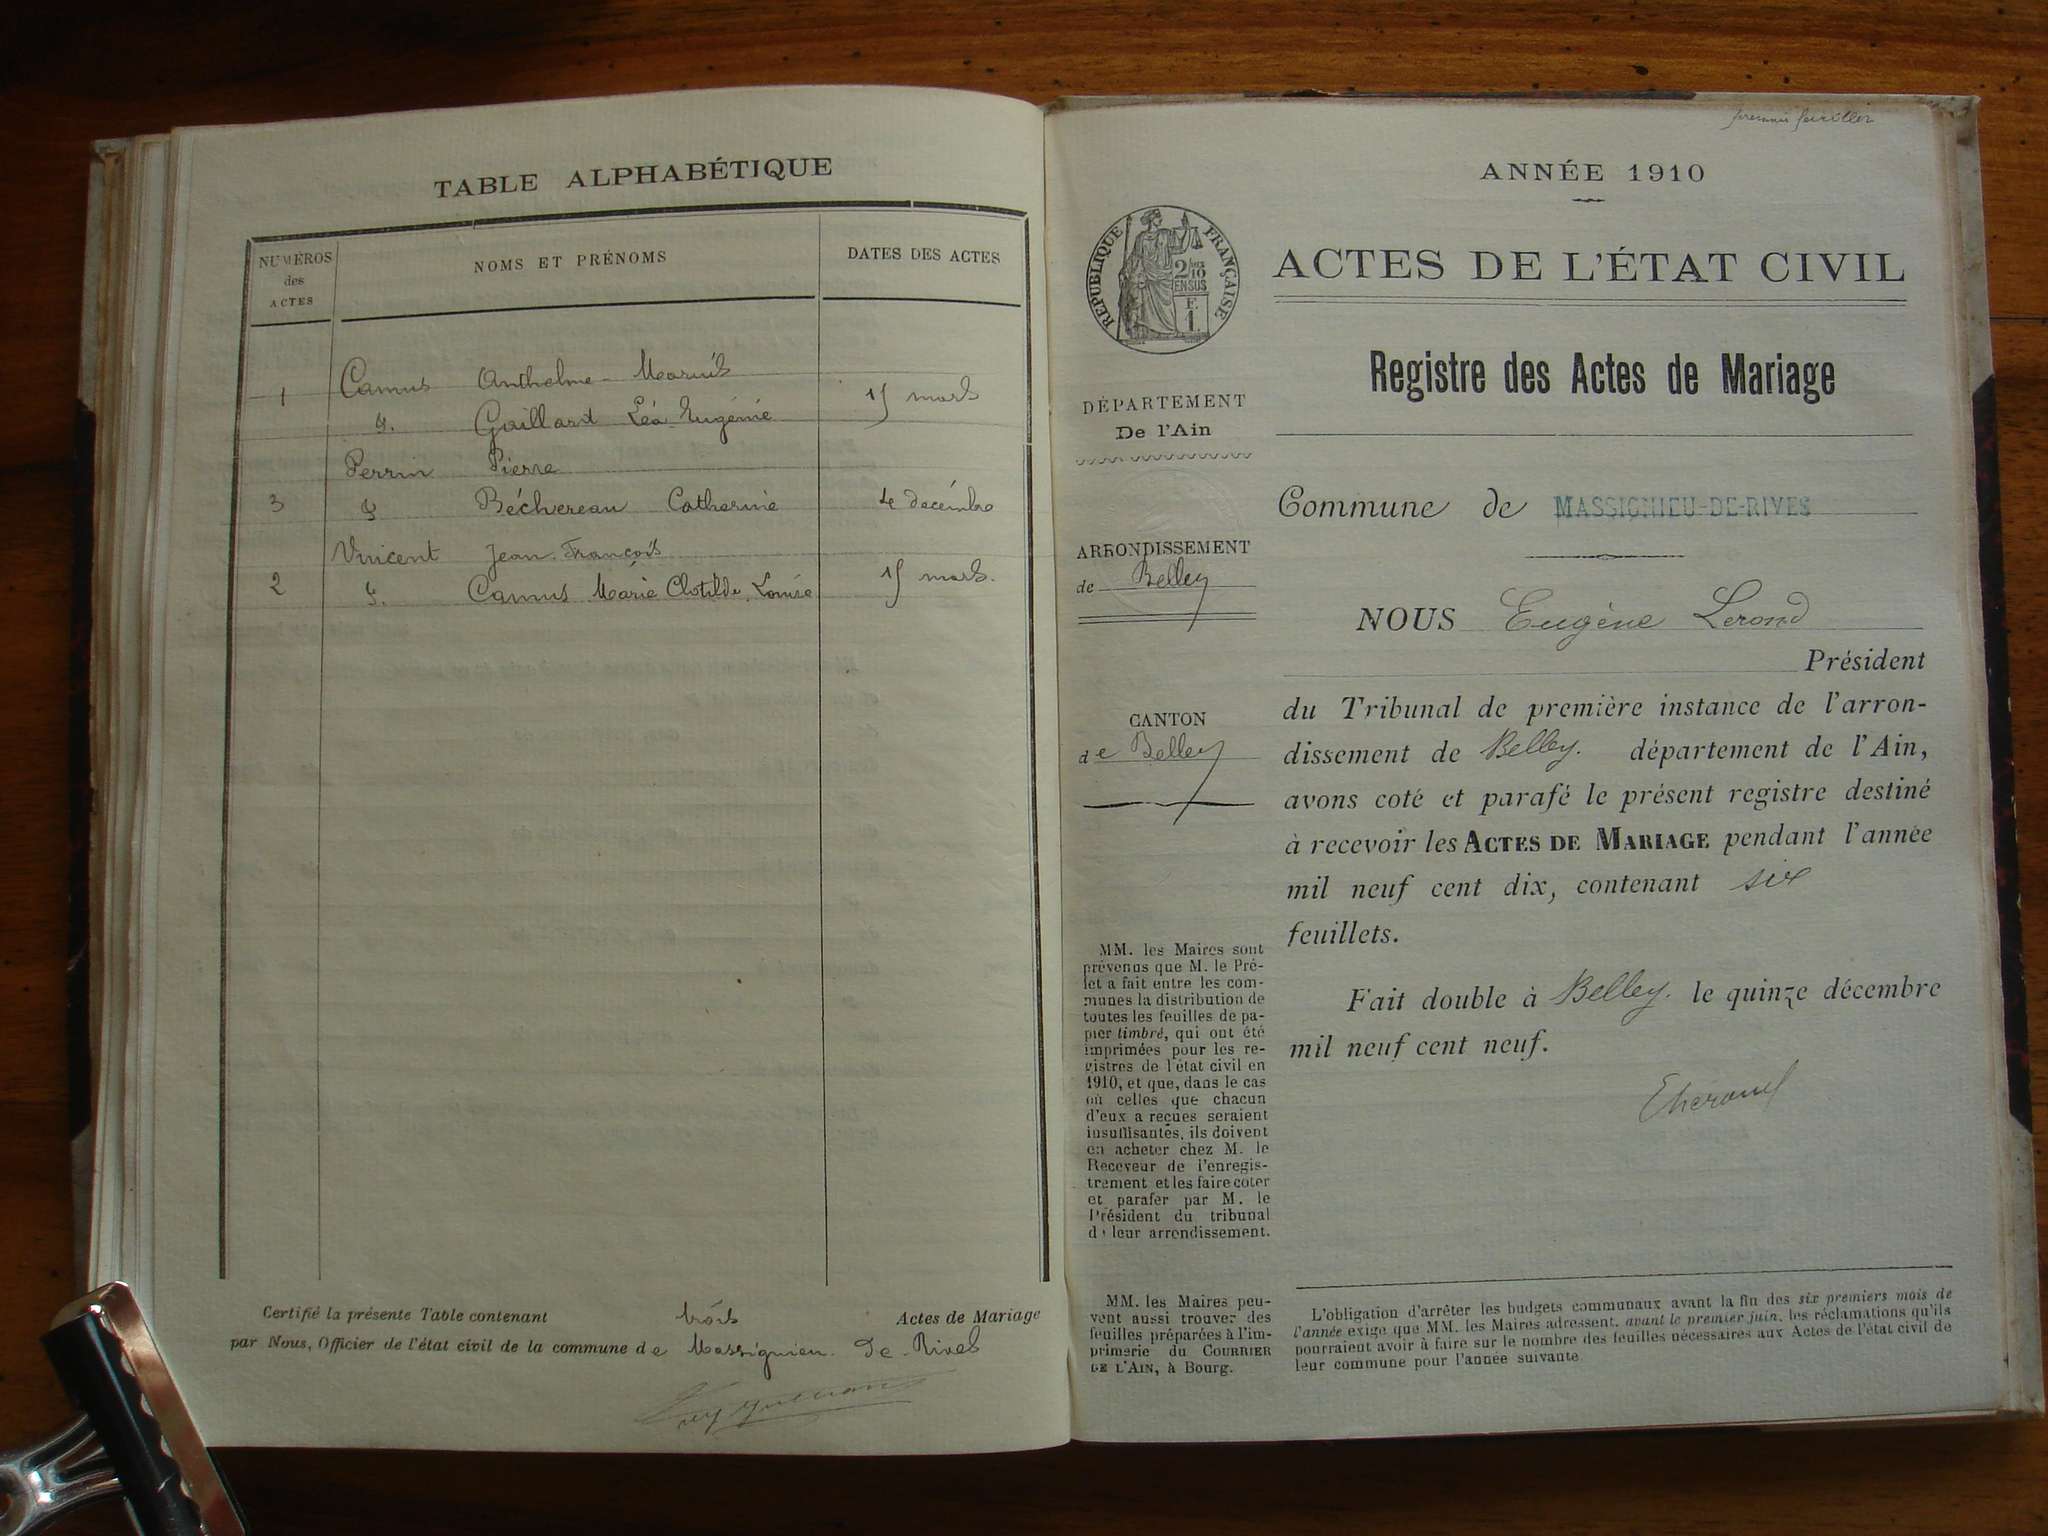 TABLE ALPHABÉTIQUE
NUMÉROS
des
ACTES
NOMS ET PRÉNOMS
DATES DES ACTES
1 Camus Anthelme-Marius 15 mars
& Gaillard Léa Eugénie
Perrin Pierre
3 & Béchereau Catherine 4 decémbre
Vincent Jean-François
2 & Camus Marie Clotilde, Louise 15 mars.
Certifié la présente Table contenant trois Actes de Mariage
par Nous, Officier de l'état civil de la commune de Massignieu-De-Rives
premier feuillet
ANNÉE 1910
RÉPUBLIQUE FRANÇAISE
2/10
EN SUS
F.
1.
ACTES DE L'ÉTAT CIVIL
Registre des Actes de Mariage
DÉPARTEMENT
De l'Ain
Commune de MASSIGNIEU-DE-RIVES
ARRONDISSEMENT
de Belley
CANTON
de Belley
NOUS Eugène Lerond
Président
du Tribunal de première instance de l'arron-
dissement de Belley. département de l'Ain,
avons coté et parafé le présent registre destiné
à recevoir les ACTES DE MARIAGE pendant l'année
mil neuf cent dix, contenant six
feuillets.
Fait double à Belley. le quinze décembre
mil neuf cent neuf.
MM. les Maires sont
prévenus que M. le Pré-
fet a fait entre les com-
munes la distribution de
toutes les feuilles de pa-
pier timbré, qui ont été
imprimées pour les re-
gistres de l'état civil en
1910, et que, dans le cas
où celles que chacun
d'eux a reçues seraient
insuffisantes, ils doivent
en acheter chez M. le
Receveur de l'enregis-
trement et les faire coter
et parafer par M. le
Président du tribunal
de leur arrondissement.
MM. les Maires peu-
vent aussi trouver des
feuilles préparées à l'im-
primerie du COURRIER
DE L'AIN, à Bourg.
L'obligation d'arrêter les budgets communaux avant la fin des six premiers mois de
l'année exige que MM. les Maires adressent, avant le premier juin, les réclamations qu'ils
pourraient avoir à faire sur le nombre des feuilles nécessaires aux Actes de l'état civil de
leur commune pour l'année suivante